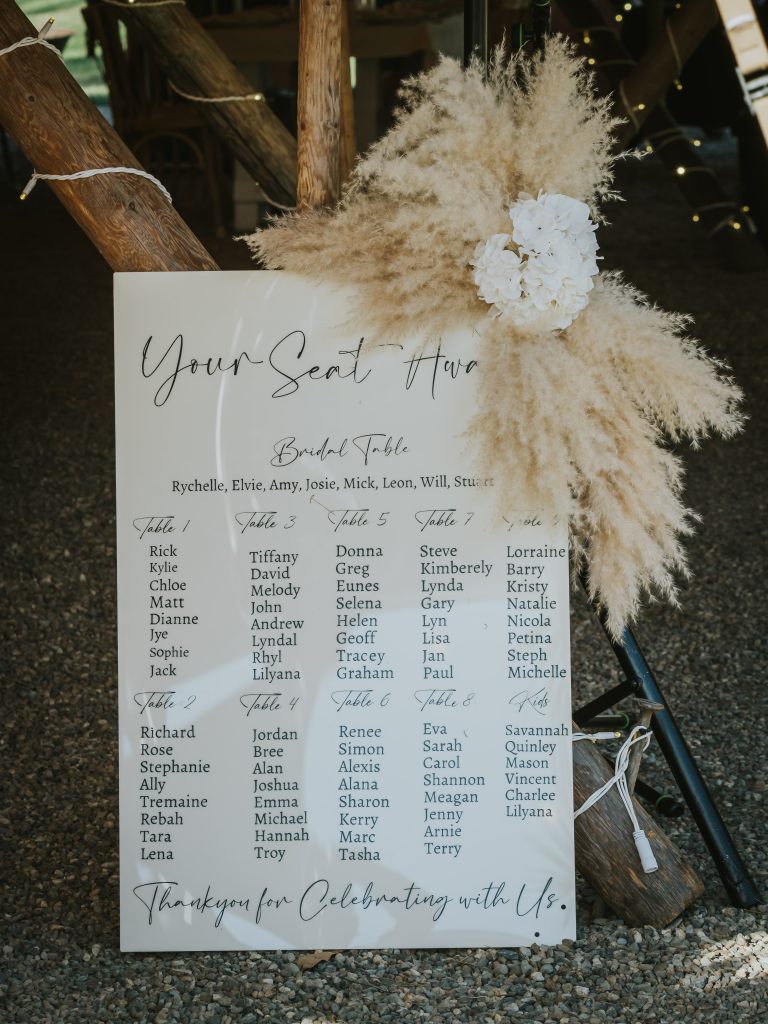 Your Seat Awa
Bridal Table
Rychelle, Elvie, Amy, Josie, Mick, Leon, Will, Stuart
Table 1
Rick
Kylie
Chloe
Matt
Dianne
Jye
Sophie
Jack
Table 3
Tiffany
David
Melody
John
Andrew
Lyndal
Rhyl
Lilyana
Table 5
Donna
Greg
Eunes
Selena
Helen
Geoff
Tracey
Graham
Table 7
Steve
Kimberely
Lynda
Gary
Lyn
Lisa
Jan
Paul
Lorraine
Barry
Kristy
Natalie
Nicola
Petina
Steph
Michelle
Table 2
Richard
Rose
Stephanie
Ally
Tremaine
Rebah
Tara
Lena
Table 4
Jordan
Bree
Alan
Joshua
Emma
Michael
Hannah
Troy
Table 6
Renee
Simon
Alexis
Alana
Sharon
Kerry
Marc
Tasha
Table 8
Eva
Sarah
Carol
Shannon
Meagan
Jenny
Arnie
Terry
Kids
Savannah
Quinley
Mason
Vincent
Charlee
Lilyana
Thankyou for Celebrating with Us.